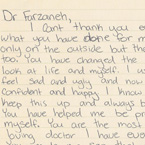 Dr Farzaneh,
I can't thank you e
what you have done for m
only on the outside but th
too. You have changed the
look at life and myself. I u
feel sad and ugly and now
confident and happy. I know
keep this up and always b
You have helped me be pr
myself. You are the most
loving doctor I have eve